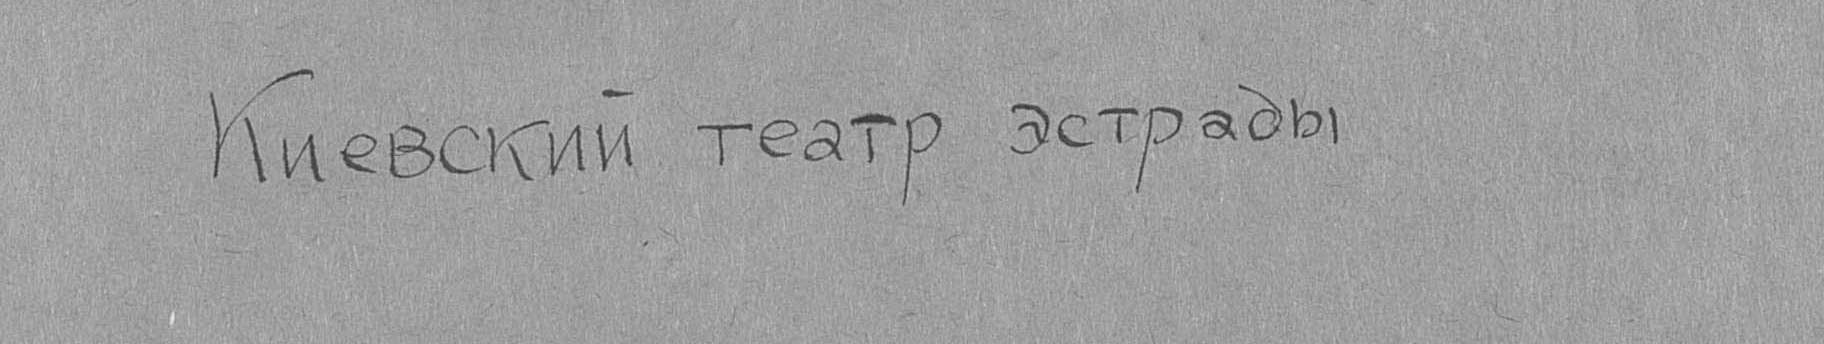 Киевский театр эстрады